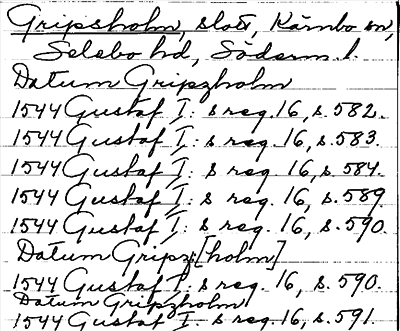 Gripsholm, slott, Kärnbo sn,
Selebo hd, Söderm. l.
Datum Gripzholm
1544 Gustaf I: s reg. 16, s. 582.
1544 Gustaf I: s reg. 16, s. 583.
1544 Gustaf I: s reg. 16, s. 584.
1544 Gustaf I: s reg. 16, s. 589.
1544 Gustaf I: s reg. 16, s. 590.
Datum Gripz:[holm]
1544 Gustaf I: s reg. 16, s. 590.
Datum Gripzholm
1544 Gustaf I: s reg. 16, s. 591.